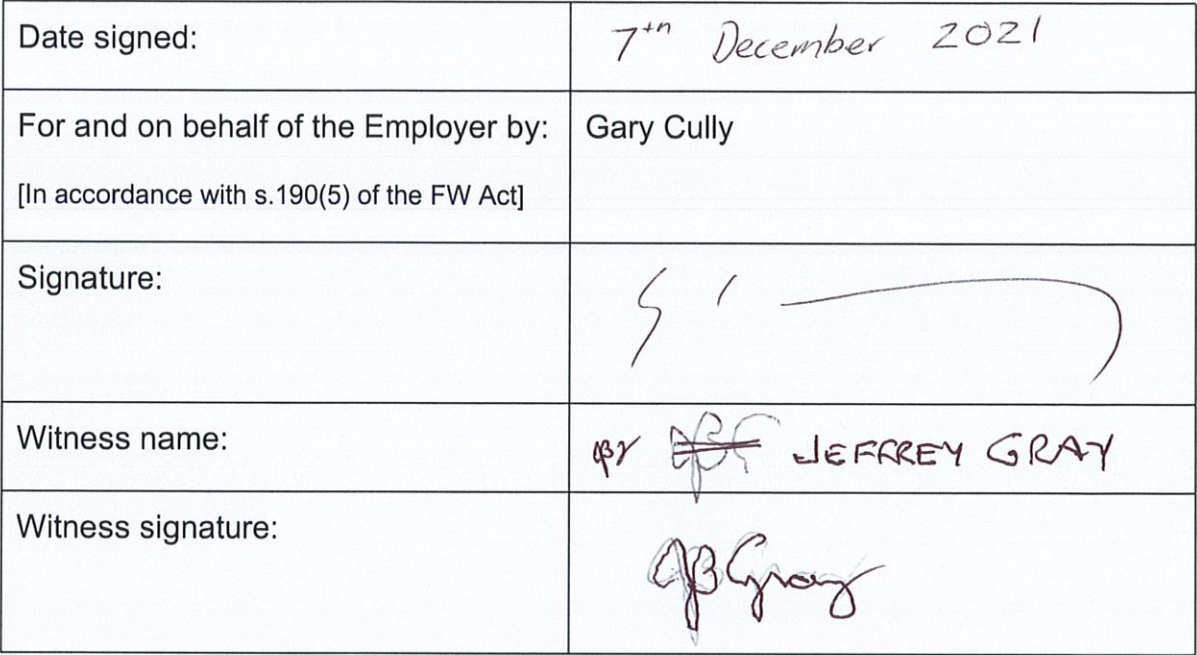 Date signed: 7th December 2021
For and on behalf of the Employer by: Gary Cully
[In accordance with s.190(5) of the FW Act]
Signature:
Witness name: JEFFREY GRAY
Witness signature: JBGray